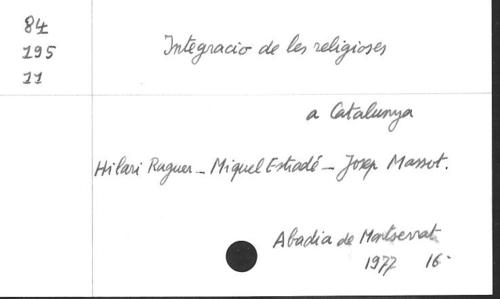 84
195
11
Integracio de les religioses
a Catalunya
Hilari Raguer - Miquel Estradé - Josep Massot.
Abadia de Montserrat
1977 16-